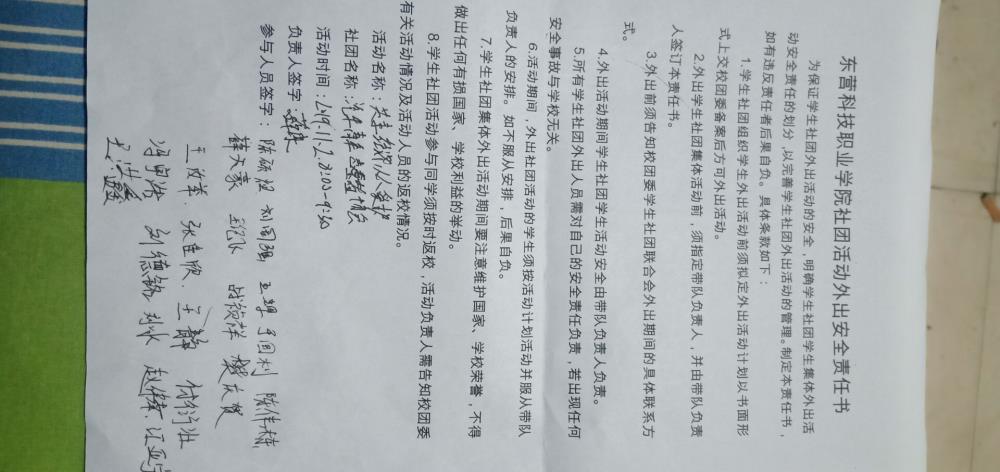 东营科技职业学院社团活动外出安全责任书
为保证学生社团外出活动的安全,明确学生社团学生集体外出活
动安全责任的划分,以完善学生社团外出活动的管理。制定本责任书,
如有违反责任者后果自负。具体条款如下:
1.学生社团组织学生外出活动前须拟定外出活动计划以书面形
式上交校团委备案后方可外出活动。
2.外出学生社团集体活动前,须指定带队负责人,并由带队负责
人签订本责任书。
3.外出前须告知校团委学生社团联合会外出期间的具体联系方
式。
4.外出活动期间学生社团学生活动安全由带队负责人负责。
5.所有学生社团外出人员需对自己的安全责任负责,若出现任何
安全事故与学校无关。
6.活动期间,外出社团活动的学生须按活动计划活动并服从带队
负责人的安排。如不服从安排,后果自负。
7.学生社团集体外出活动期间要注意维护国家、学校荣誉,不得
做出任何有损国家、学校利益的举动。
8.学生社团活动参与同学须按时返校;活动负责人需告知校团委
有关活动情况及活动人员的返校情况。
活动名称:
社团名称:
活动时间:2019.11.2
负责人签字:
参与人员签字: 陈硕 刘国强 王
薛文豪
王 张 王静
刘德铭